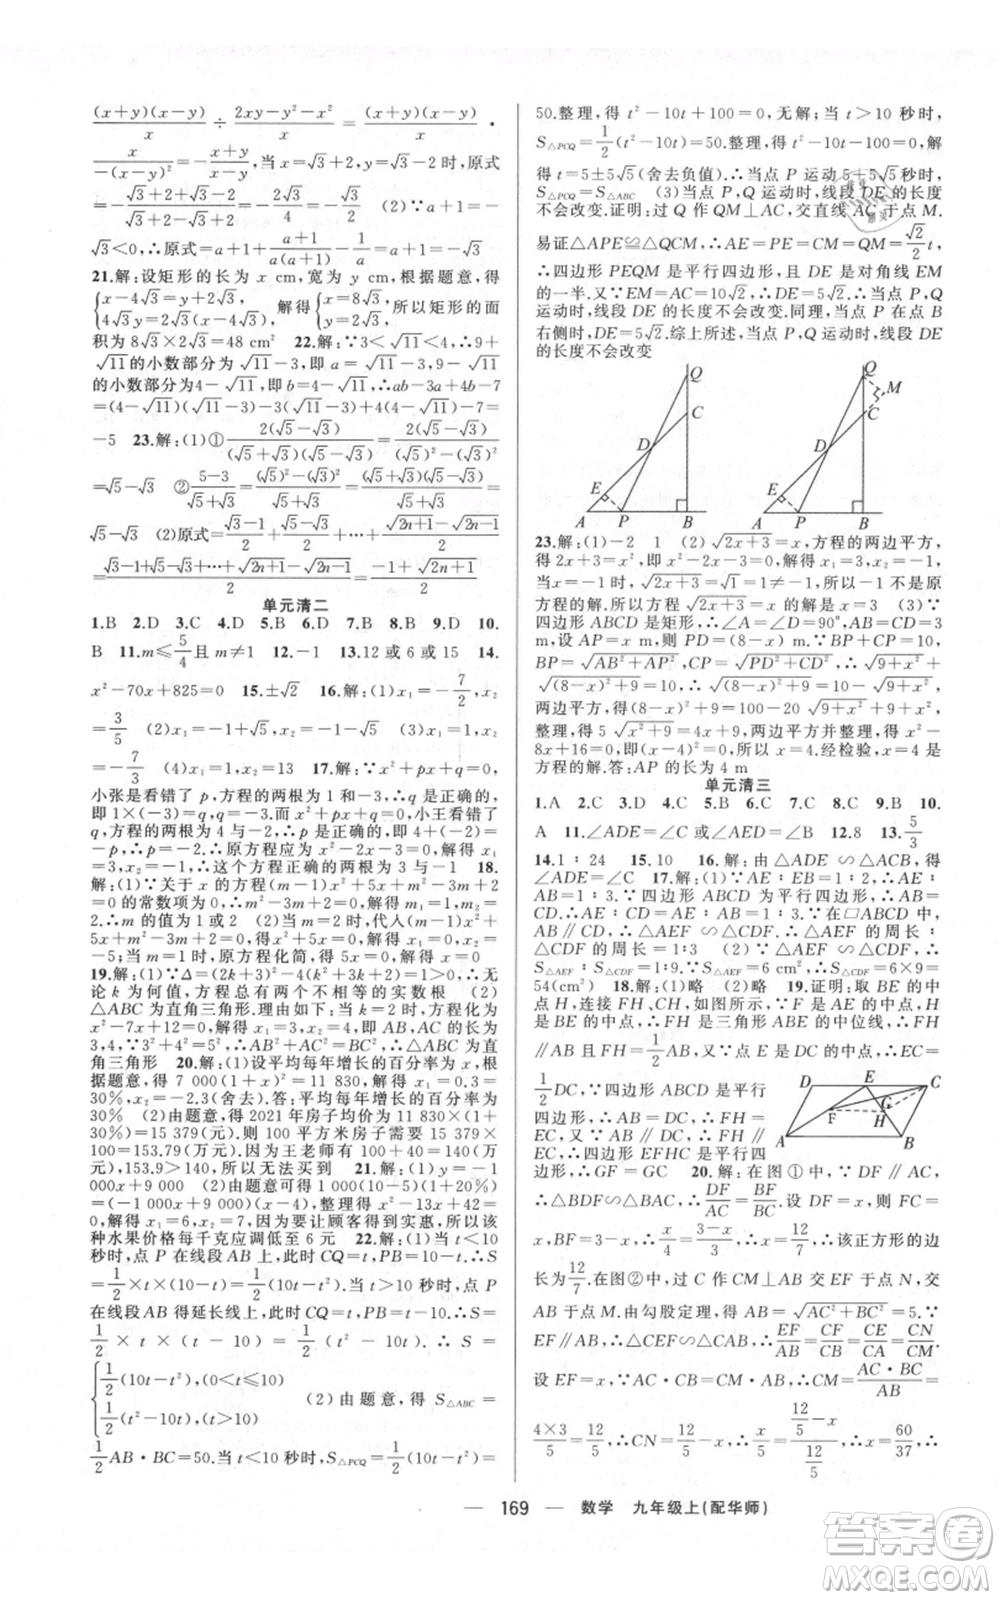 (x+y)(x-y)/x ÷ (2xy-y²-x²)/x = (x+y)(x-y)/x ·
x/(-(x-y)²) = -(x+y)/(x-y),当 x=√3+2,y=√3-2时,原式
=-(√3+2+√3-2)/(√3+2-√3+2)=-2√3/4=-√3/2 (2)∵a+1=-
√3<0,∴原式=a+1+(a+1)/(a(a+1))=a+1+1/a=a+1=-√3
21.解:设矩形的长为 x cm,宽为 y cm,根据题意,得
{x-4√3=y+2√3, 4√3y=2√3(x-4√3), 解得{x=8√3, y=2√3, 所以矩形的面
积为 8√3×2√3=48 cm² 22.解:∵3<√11<4,∴9+
√11的小数部分为√11-3,即 a=√11-3,9-√11
的小数部分为4-√11,即 b=4-√11,∴ab-4a+3b-7
=(4-√11)(√11-3)-4(√11-3)+3(4-√11)-7=
-5 23.解:(1)①2(√5-√3)/((√5+√3)(√5-√3))=2(√5-√3)/((√5)²-(√3)²)
=√5-√3 ②(5-3)/(√5+√3)=((√5)²-(√3)²)/(√5+√3)=(√5+√3)(√5-√3)/(√5+√3)=
√5-√3 (2)原式=(√3-1)/2+(√5-√3)/2+…+(√2n+1-√2n-1)/2=
(√3-1+√5-√3+…+√2n+1-√2n-1)/2=(-1+√2n+1)/2
单元清二
1.B 2.D 3.C 4.D 5.B 6.B 7.C 8.B 9.D 10.
B 11.m≤5/4且 m≠1 12.-1 13.12 或 6 或 15 14.
x²-70x+825=0 15.±√2 16.解:(1)x₁=-7/2,x₂
=3/5 (2)x₁=-1+√5,x₂=-1-√5 (3)x₁=x₂=
-7/3 (4)x₁=1,x₂=13 17.解:∵x²+px+q=0,
小张看错了 p,方程的两根为 1 和-3,∴
1×(-3)=q,q=-3,小王看错了
q,方程的两根为 4 与-2,∴-p=4+(-2)=
2,∴p=-2,∴原方程为 x²-2x-3=0,解得 x₁=3,
x₂=-1,∴这个方程正确的两根为 3 与-1 18.
解:(1)∵关于 x 的方程(m-1)x²+5x+m²-3m+2=0
的常数项为 0,∴m²-3m+2=0,解得 m₁=1,m₂=
2,∴m 的值为 1 或 2 (2)当 m=2 时,代入(m-1)x²+
5x+m²-3m+2=0,得 x²+5x=0,解得 x₁=0,x₂=
-5;当 m=1 时,原方程化简,得 5x=0,解得 x=0
19.解:(1)∵Δ=(2k+3)²-4(k²+3k+2)=1>0,∴无
论 k 为何值,方程总有两个不相等的实数根 (2)
△ABC 为直角三角形.理由如下:当 k=2 时,方程化为
x²-7x+12=0,解得 x₁=3,x₂=4,即 AB,AC 的长为
3,4,∵3²+4²=5²,∴AB²+AC²=BC²,∴△ABC 为直
角三角形 20.解:(1)设平均每年增长的百分率为 x,根
据题意,得 7 000(1+x)²=11 830,解得 x₁=0.3=
30%,x₂=-2.3(舍去).答:平均每年增长的百分率为
30% (2)由题意,得 2021 年房子均价为 11 830×(1+
30%)=15 379(元),则 100 平方米房子需要 15 379×
100=153.79(万元),因为王老师有
20+133.9=153.9(万元),153.9>153.79,所以王老师能够买到 21.解:(1)
1000x+6000 (2)由题意可得(10-x-4)(1000x+6
000)=(-1000x+6000)(x-4),整理得 x²-13x+42=0,
解得 x₁=6,x₂=7.∵要让顾客得到实惠,所以该
种水果价格每千克应调低至 6 元 22.解:(1)当 t<10
秒时,点 P 在线段 AB 上,此时 CQ=t,PB=10-t,∴S
=1/2×t×(10-t)=1/2(10t-t²),当 t>10 秒时,点 P
在线段 AB 得延长线上,此时 CQ=t,PB=t-10,∴S=
1/2×t×(t-10)=1/2(t²-10t),∴S=
{1/2(10t-t²),(0<t≤10) 1/2(t²-10t),(t>10) (2)由题意,得 S△ABC=
1/2AB·BC=50.当 t<10 秒时,S△PCQ=1/2(10t-t²)=
50.整理,得 t²-10t+100=0,无解;当 t>10 秒时,
S△PCQ=1/2(t²-10t)=50.整理,得 t²-10t-100=0,解
得 t=5±5√5(舍去负值).∴当点 P 运动 5+5√5秒时,
S△PCQ=S△ABC (3)当点 P,Q 运动时,线段 DE 的长度
不会改变.证明:过 Q 作 QM⊥AC,交直线 AC 于点 M.
易证△APE≌△QCM,∴AE=PE=CM=QM=√2/2t,
∴四边形 PEQM 是平行四边形,且 DE 是对角线 EM
的一半.又∵EM=AC=10√2,∴DE=5√2.∴当点 P,Q
运动时,线段 DE 的长度不会改变.同理,当点 P 在点 B
右侧时,DE=5√2.综上所述,当点 P,Q 运动时,线段 DE
的长度不会改变
Q C D E A P B
Q M C D E A P B
23.解:(1)-2 1 (2)√2x+3=x,方程的两边平方,
得 2x+3=x²,即 x²-2x-3=0,解得 x₁=3,x₂=-1,
当 x=-1 时,√2x+3=√1=1≠-1,所以-1 不是原
方程的解.所以方程√2x+3=x 的解是 x=3 (3)∵
四边形 ABCD 是矩形,∴∠A=∠D=90°,AB=CD=3
m,设 AP=x m,则 PD=(8-x)m,∵BP+CP=10,
BP=√AB²+AP²,CP=√PD²+CD²,∴√9+x²+
√(8-x)²+9=10,∴√(8-x)²+9=10-√9+x²,
两边平方,得(8-x)²+9=100-20√9+x²+9+x²,
整理,得 5√x²+9=4x+9,两边平方并整理,得 x²-
8x+16=0,即(x-4)²=0,解得 x=4.经检验,x=4 是
方程的解.答:AP 的长为 4 m
单元清三
1.A 2.C 3.D 4.C 5.B 6.C 7.C 8.B 9.B 10.
A 11.∠ADE=∠C 或∠AED=∠B 12.8 13.5/3
14.1:24 15.10 16.解:由△ADE∽△ACB,得
∠ADE=∠C
∵四边形 ABCD 为平行四边形,∴
CD=AB,∴AE:CD=1:3.∵在▱ABCD 中,
AE∥CD,∴△AEF∽△CDF,∴△AEF 的周长:
△CDF 的周长=1:3 (2)∵△AEF∽△CDF,∴
S△AEF:S△CDF=1:9.∵S△AEF=6 cm²,∴S△CDF=6×9=
54(cm²) 18.解:(1)略 (2)略 19.证明:取 BE 的中
点 H,连接 FH,CH,∵F 是 AE 的中点,H
是 BE 的中点,∴FH 是三角形 ABE 的中位线,∴FH
∥AB 且 FH=1/2AB,又∵点 E 是 DC 的中点,∴EC=
1/2DC,∵四边形 ABCD 是平行
四边形,∴AB∥DC,∴FH=
EC,又∵AB∥DC,∴FH∥
EC,∴四边形 EFHC 是平行四边
形,∴GF=GC 20.解:在图①中,∵DF∥AC,
D E C F G H A B
∴△BDF∽△BAC,∴DF/AC=BF/BC.设 DF=x,则 FC=
x,BF=3-x,∴x/4=(3-x)/3,∴x=12/7,∴该正方形的边
长为12/7.在图②中,过 C 作 CM⊥AB 交 EF 于点 N,交
AB 于点 M.由勾股定理,得 AB=√AC²+BC²=5.∵
EF∥AB,∴△CEF∽△CAB,∴EF/AB=CE/CA=CN/CM.
设 EF=x,∵AC·BC=AB·CM,∴CM=AC·BC/AB=
4×3/5=12/5,∴CN=12/5-x,∴x/5=(12/5-x)/(12/5),∴x=60/37,∴
— 169 — 数学 九年级上(配华师)
答案圈
MXQE.COM